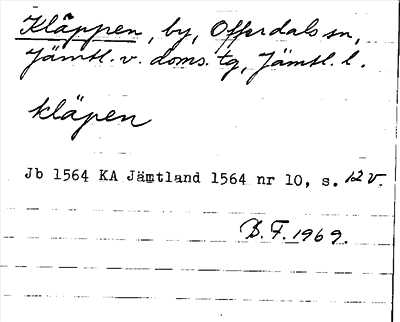 Kläppen, by, Offerdals sn,
Jämtl. v. doms. tg, Jämtl. l.
kläpen
Jb 1564 KA Jämtland 1564 nr 10, s. 12 v.
B.F. 1969.